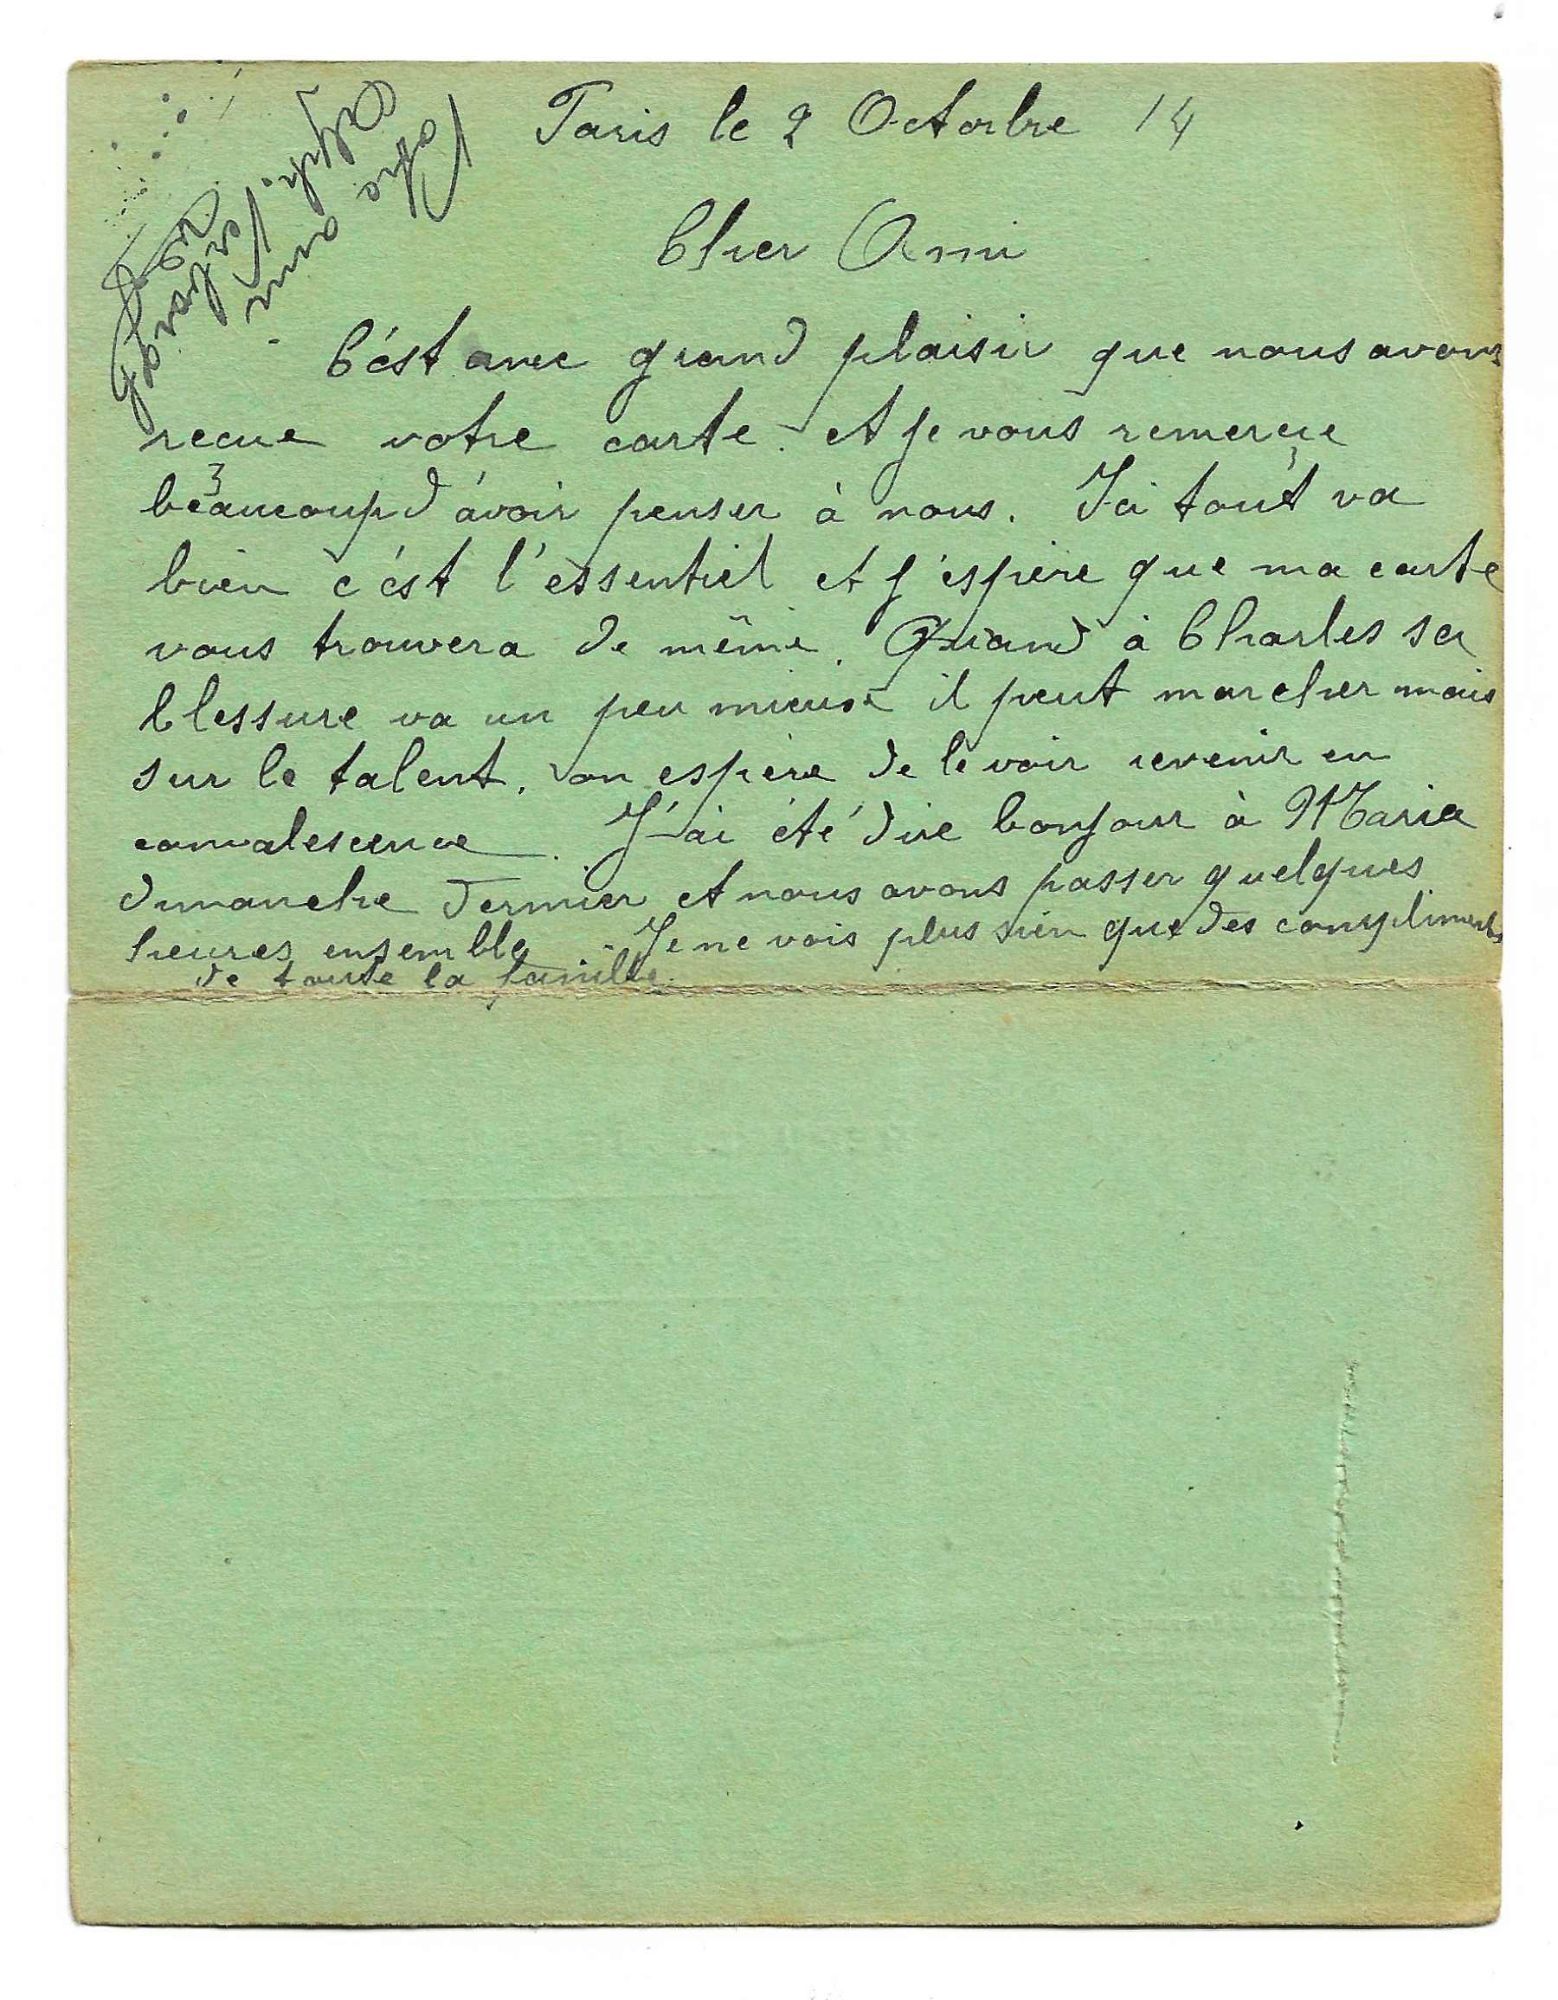 Paris le 2 Octorbre 14
Cher Ami
C'ést avec grand plaisir que nous avons
recue votre carte. et je vous remerçie
beaucoup d'avoir penser à nous. Ici tout va
bien c'ést l'essentiel et j'espère que ma carte
vous trouvera de même. Quand à Charles sa
blessure va un peu mieux il peut marcher mais
sur le talent, on espère de le voir revenir en
convalescence. J'ai été dire bonjour à Maria
dimanche dernier et nous avons passer quelques
heures ensemble. Je ne vois plus rien que des compliments
de toute la famille.
Votre ami